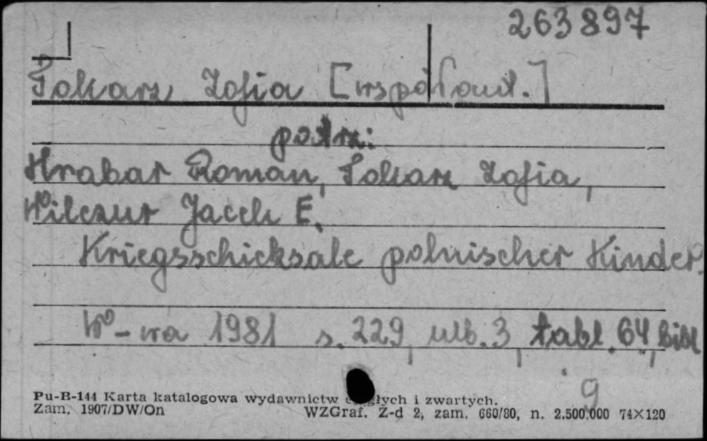 263897
Tokarz Zofia [współaut.]
patrz:
Hrabar Roman, Tokarz Zofia,
Wilczur Jacek E.
Kriegsschicksale polnischer Kinder.
W-wa 1981 s. 229, nlb. 3, tabl. 64, Bibl
9
Pu-B-144 Karta katalogowa wydawnictw ciągłych i zwartych.
Zam. 1907/DW/On WZGraf. Z-d 2, zam. 660/80, n. 2.500.000 74×120